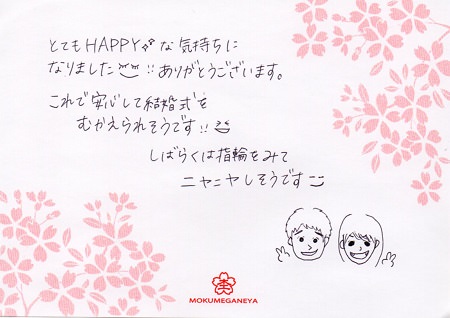 とてもHAPPYな気持ちに
なりました!!ありがとうございます。
これで安心して結婚式を
むかえられそうです!!
しばらくは指輪をみて
ニヤニヤしそうです
杢
MOKUMEGANEYA